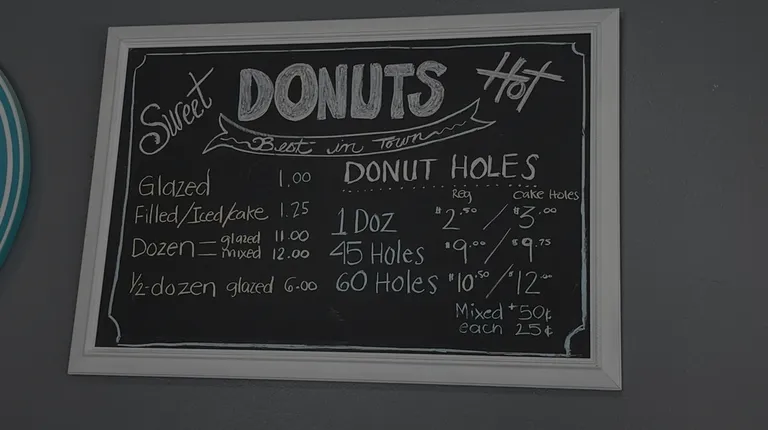 Sweet DONUTS Hot
Best in Town
Glazed 1.00
Filled/Iced/cake 1.25
Dozen = glazed 11.00
mixed 12.00
1/2-dozen glazed 6.00
DONUT HOLES
Reg Cake Holes
1 Doz $2.50 / $3.00
45 Holes $9.00 / $9.75
60 Holes $10.50 / $12.00
Mixed +50¢
each 25¢